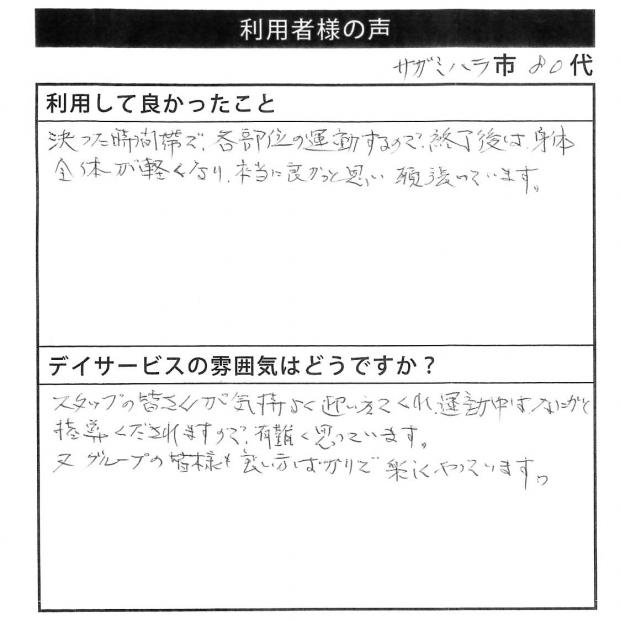 利用者様の声
サガミハラ市 80代
利用して良かったこと
決った時間帯で、各部位の運動するので、終了後は、身体
全体が軽くなり、本当に良かったと思い 頑張っています。
デイサービスの雰囲気はどうですか？
スタッフの皆さんが気持よく迎い入てくれ、運動中は、なにかと
指導くだされますので、有難く思っています。
又グループの皆様も良い方ばかりで楽しくやっています。